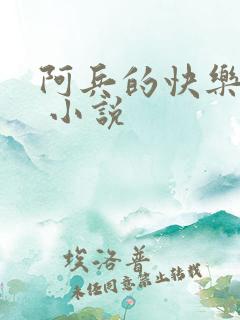 阿兵的快樂
小説
埃洛普
未经同意禁止转载